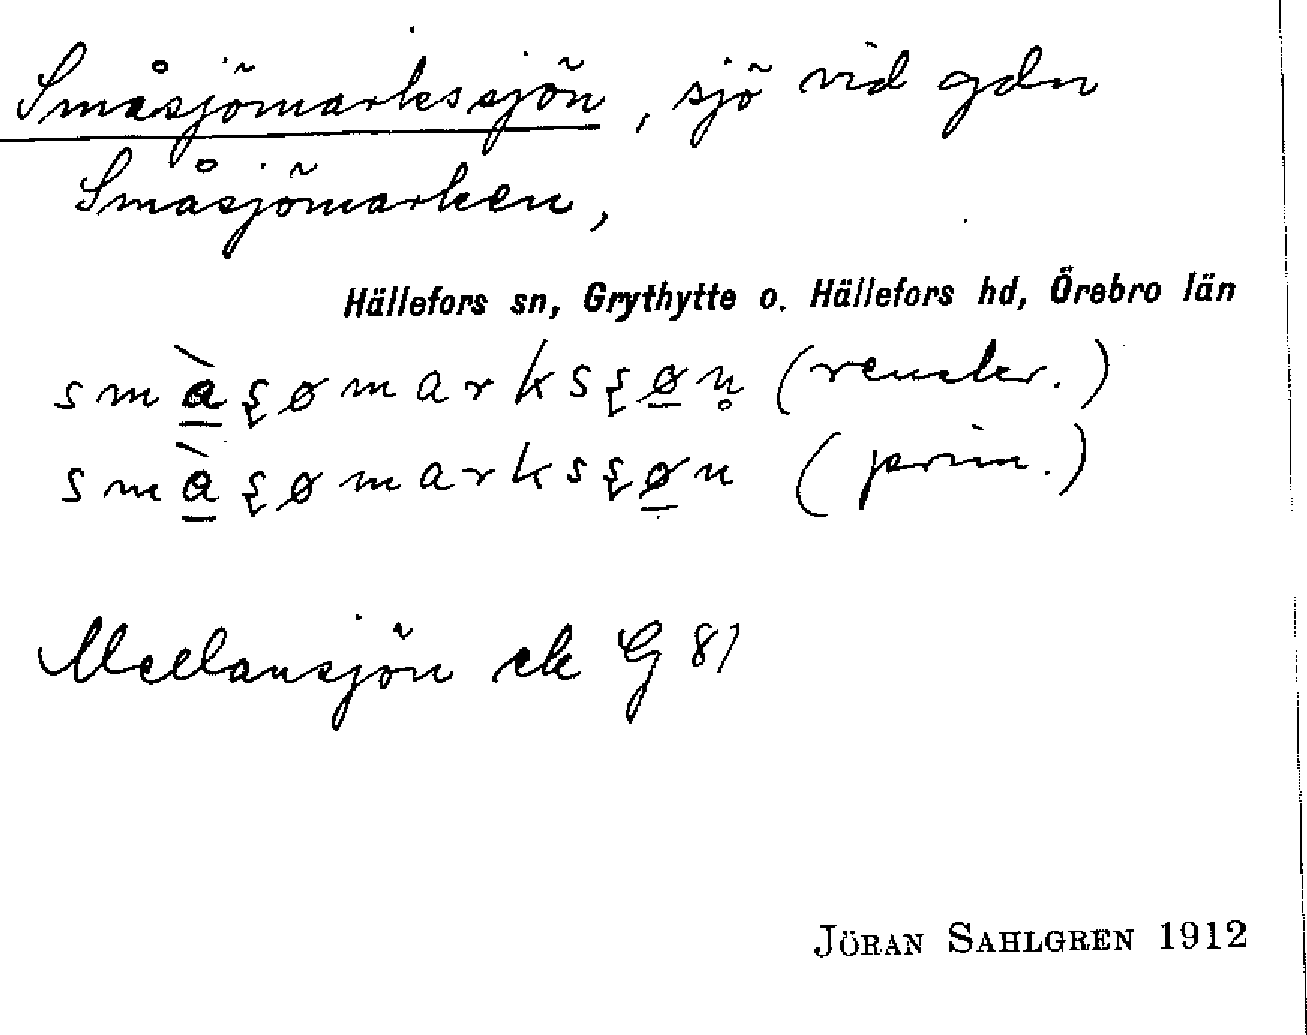 Småsjömarkssjön, sjö vid gdn
Småsjömarken,
Hällefors sn, Grythytte o. Hällefors hd, Örebro län
(renskr.)
(prim.)
Mellansjön ek G 81
JÖRAN SAHLGREN 1912